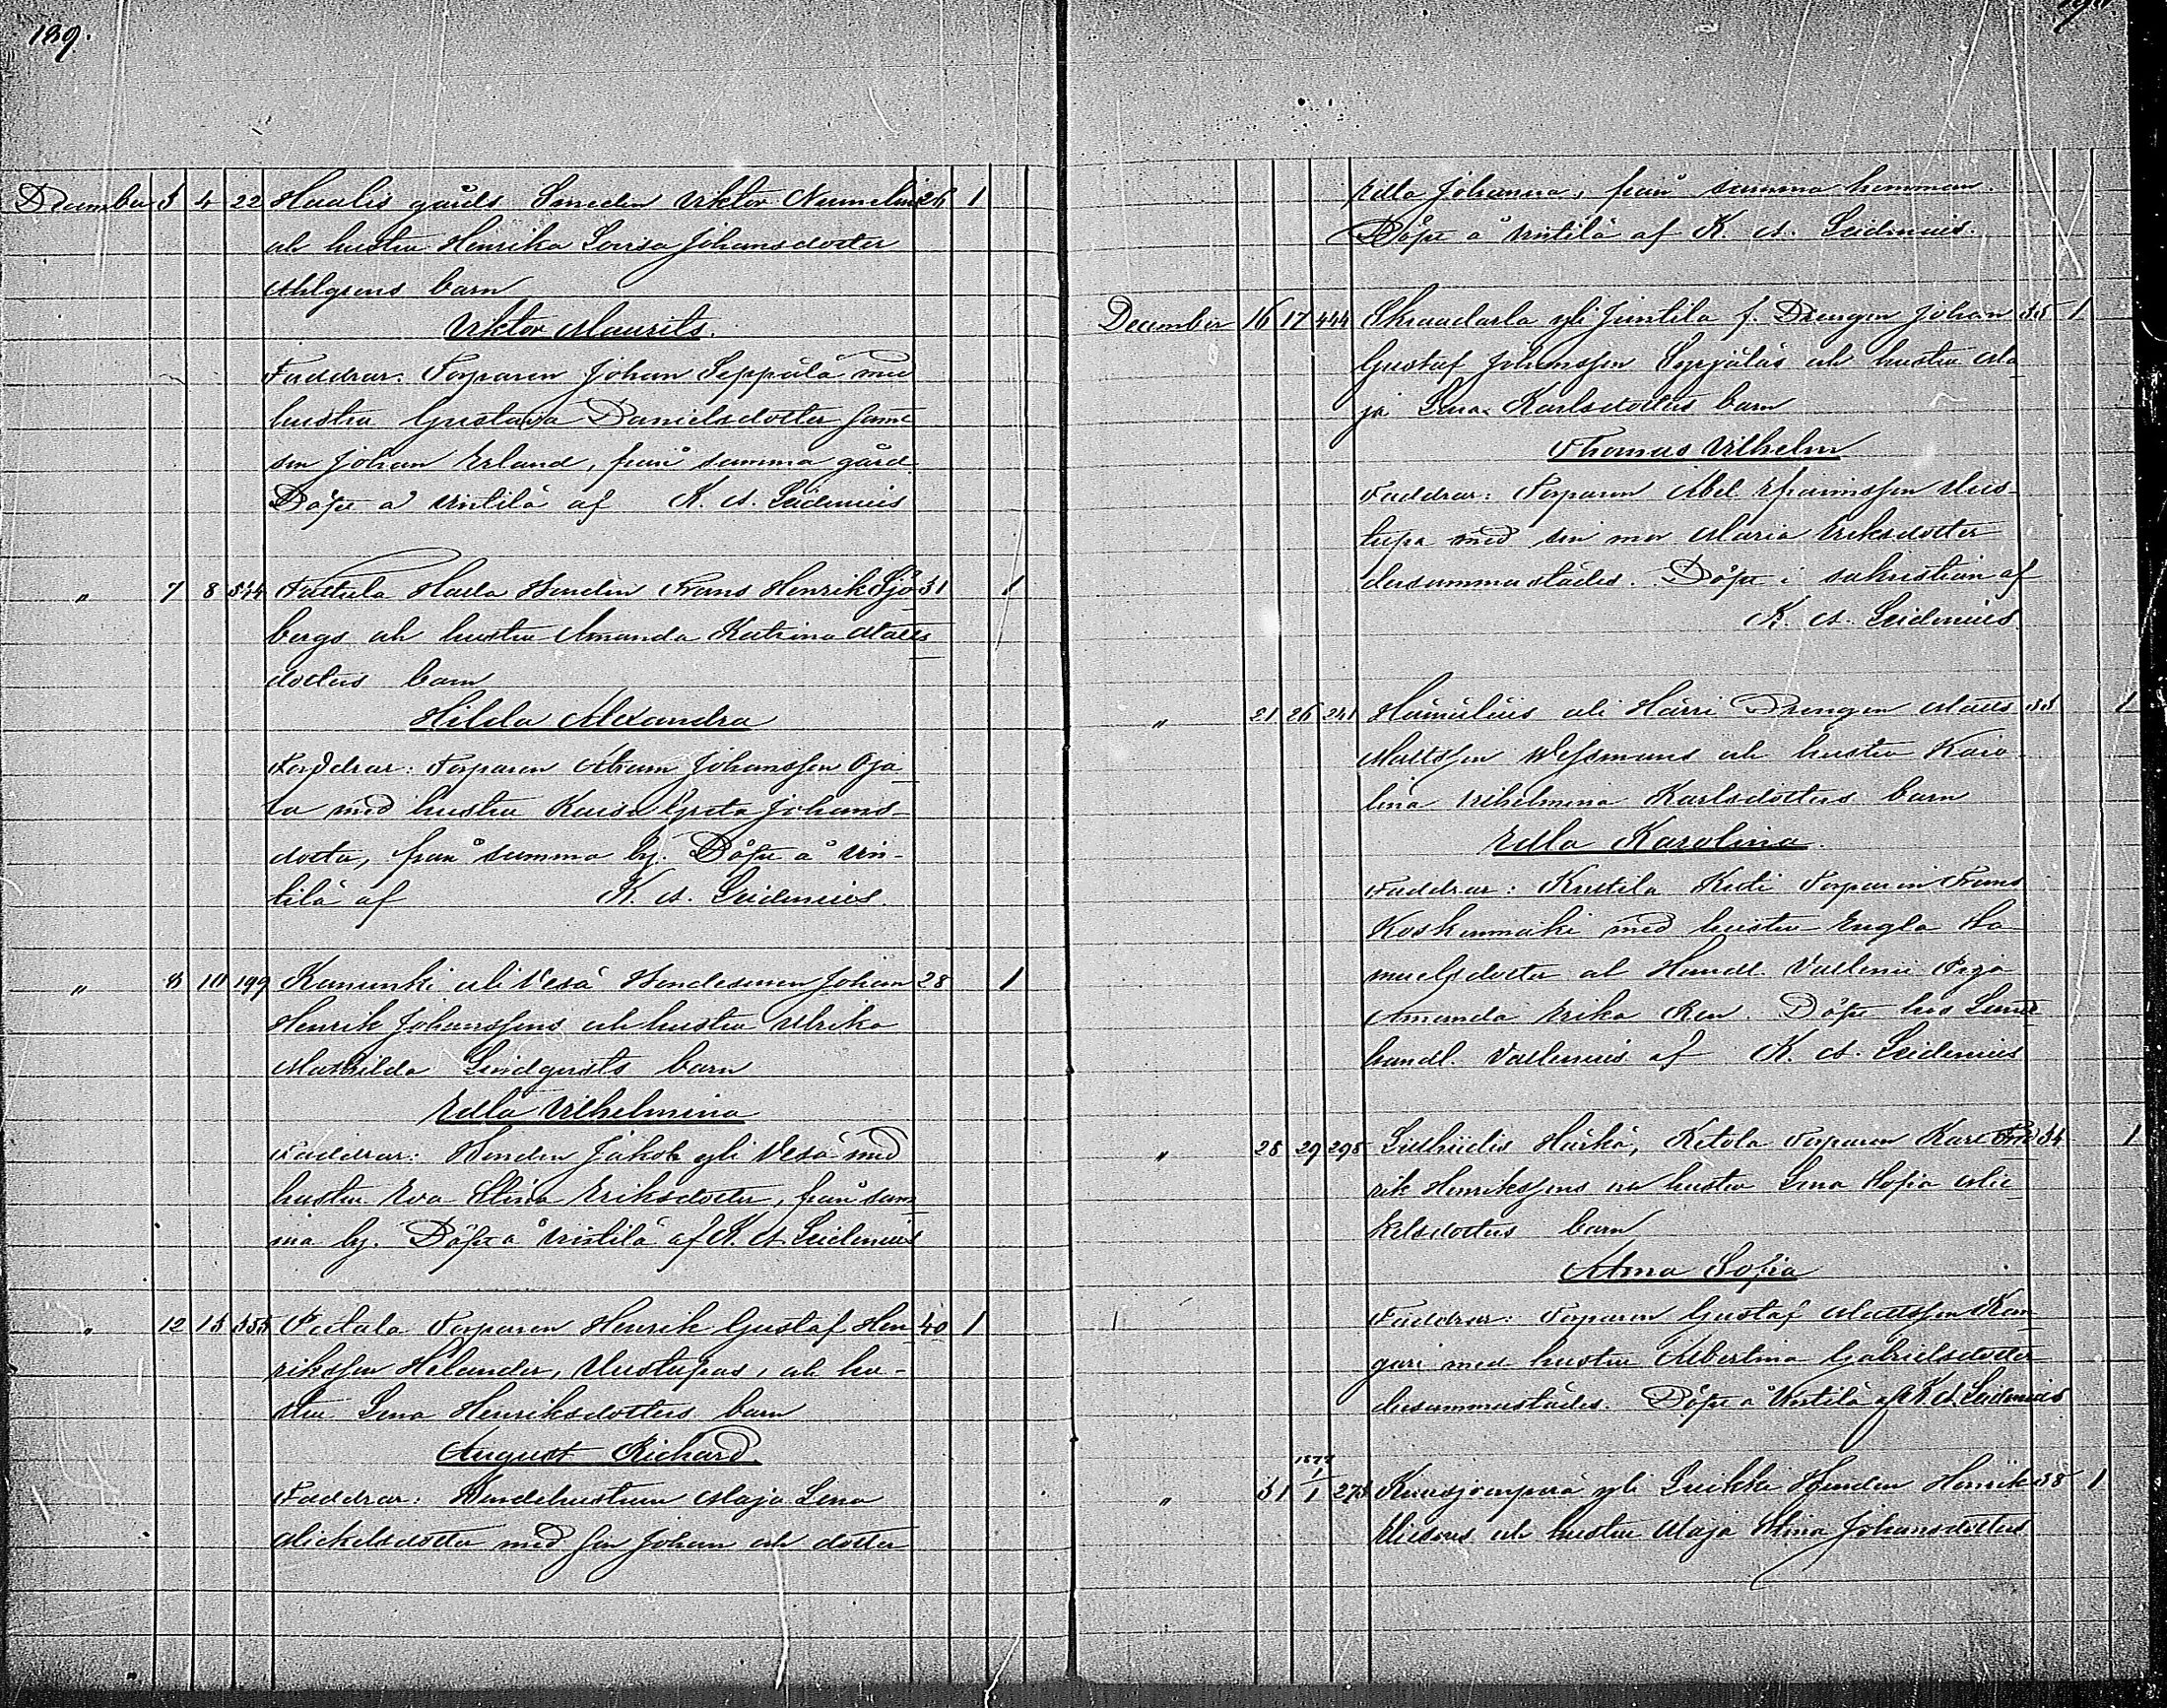 189.
December 3 4 22 Haalis gårds Smeden Viktor Numelins 26 1
och hustru Henrika Lovisa Johansdotter
Ahlgrens barn
Viktor Maurits.
Faddrar: Torparen Johan Seppälä med
hustru Gustava Danielsdotter samt
son Johan Erland, från samma gård
Döpt å Vintilä af K. A. Leidenius
" 7 8 544 Pattula Inden Frans Henrik Sjö 31 1
bergs och hustru Amanda Katrina Matts
dotters barn
Hilda Alexandra
Faddrar: Torparen Abram Johansson Oja
la med hustru Kaisa Greta Johans-
dotter, från samma by. Döpt å Vin-
tilä af K. A. Leidenius.
" 8 10 199 Kanunki ali Vesä Johan 28 1
Henrik Johanssons och hustru Ulrika
Mathilda Lindqvists barn
Edla Vilhelmina
Faddrar: Inden Jakob yli Vesä med
hustru Eva Stina Eriksdotter, från sam
ma by. Döpt å Vintilä af K. A. Leidenius
" 12 13 555 Torparen Henrik Gustaf Hen 40 1
riksson Helander, Uustupas, och hu-
stru Lena Henriksdotters barn
August Richard
Faddrar: Maja Lena
Mickelsdotter med son Johan och dotter
Edla Johanna, från samma hemman.
Döpt å Vintilä af K. A. Leidenius.
December 16 17 444 yli Juntila f. Drengen Johan 35 1
Gustaf Johansson Syrjäläs och hustru Ma
ja Lena Karlsdotters barn
Thomas Vilhelm
Faddrar: Torparen Abel Efraimsson Uus-
tupa med sin mor Maria Eriksdotter
dersammastädes. Döpt i sakristian af
K. A. Leidenius.
" 21 26 241 ali Härri Drengen Matts 33 1
Mattsson Vessmans och hustru Karo-
lina Vilhelmina Karlsdotters barn
Edla Karolina.
Faddrar: Torparen Frans
Koskenmäki med hustru Engla Sa
muelsdotter och Handl. Vallenii Piga
Amanda Erika Ren. Döpt hos Landt
handl. Vallenius af K. A. Leidenius
" 28 29 298 Härkä, Ketola Torparen Karl Fre 34 1
rik Henrikssons och hustru Lena Sofia Mic
kelsdotters barn
Alma Sofia
Faddrar: Torparen Gustaf Mattsson Kan
gari med hustru Albertina Gabrielsdotter
dersammastädes. Döpt å Vintilä af K. A. Leidenius
1877
" 31 1/1 273 yli Leikki Inden Henrik 38 1
Eliasons och hustru Maja Stina Johansdotters